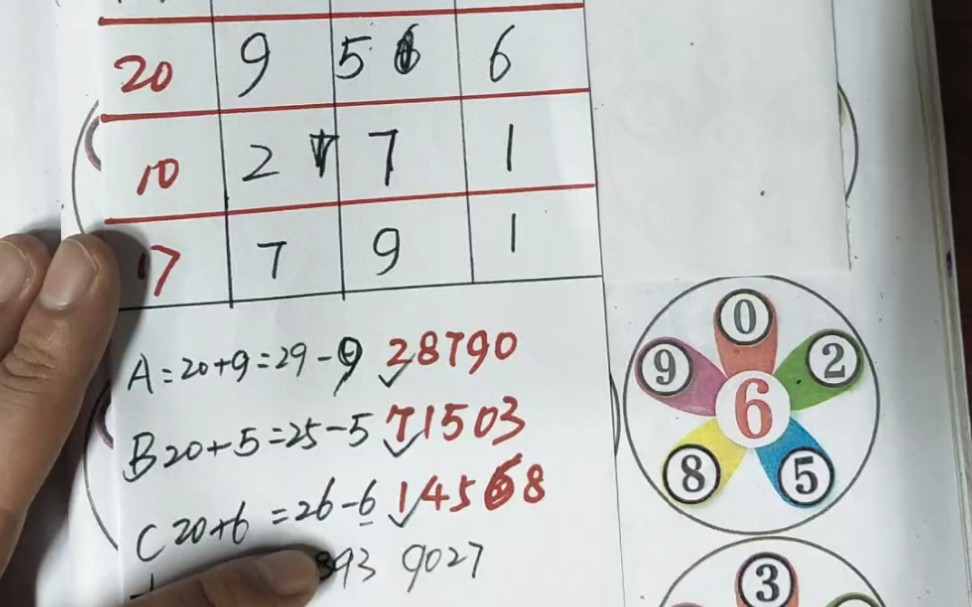 20 9 5 6
10 2 7 1
17 7 9 1
A=20+9=29-9 28790
B20+5=25-5 71503
C20+6=26-6 14568
893 9027
0
9 2
6
8 5
3